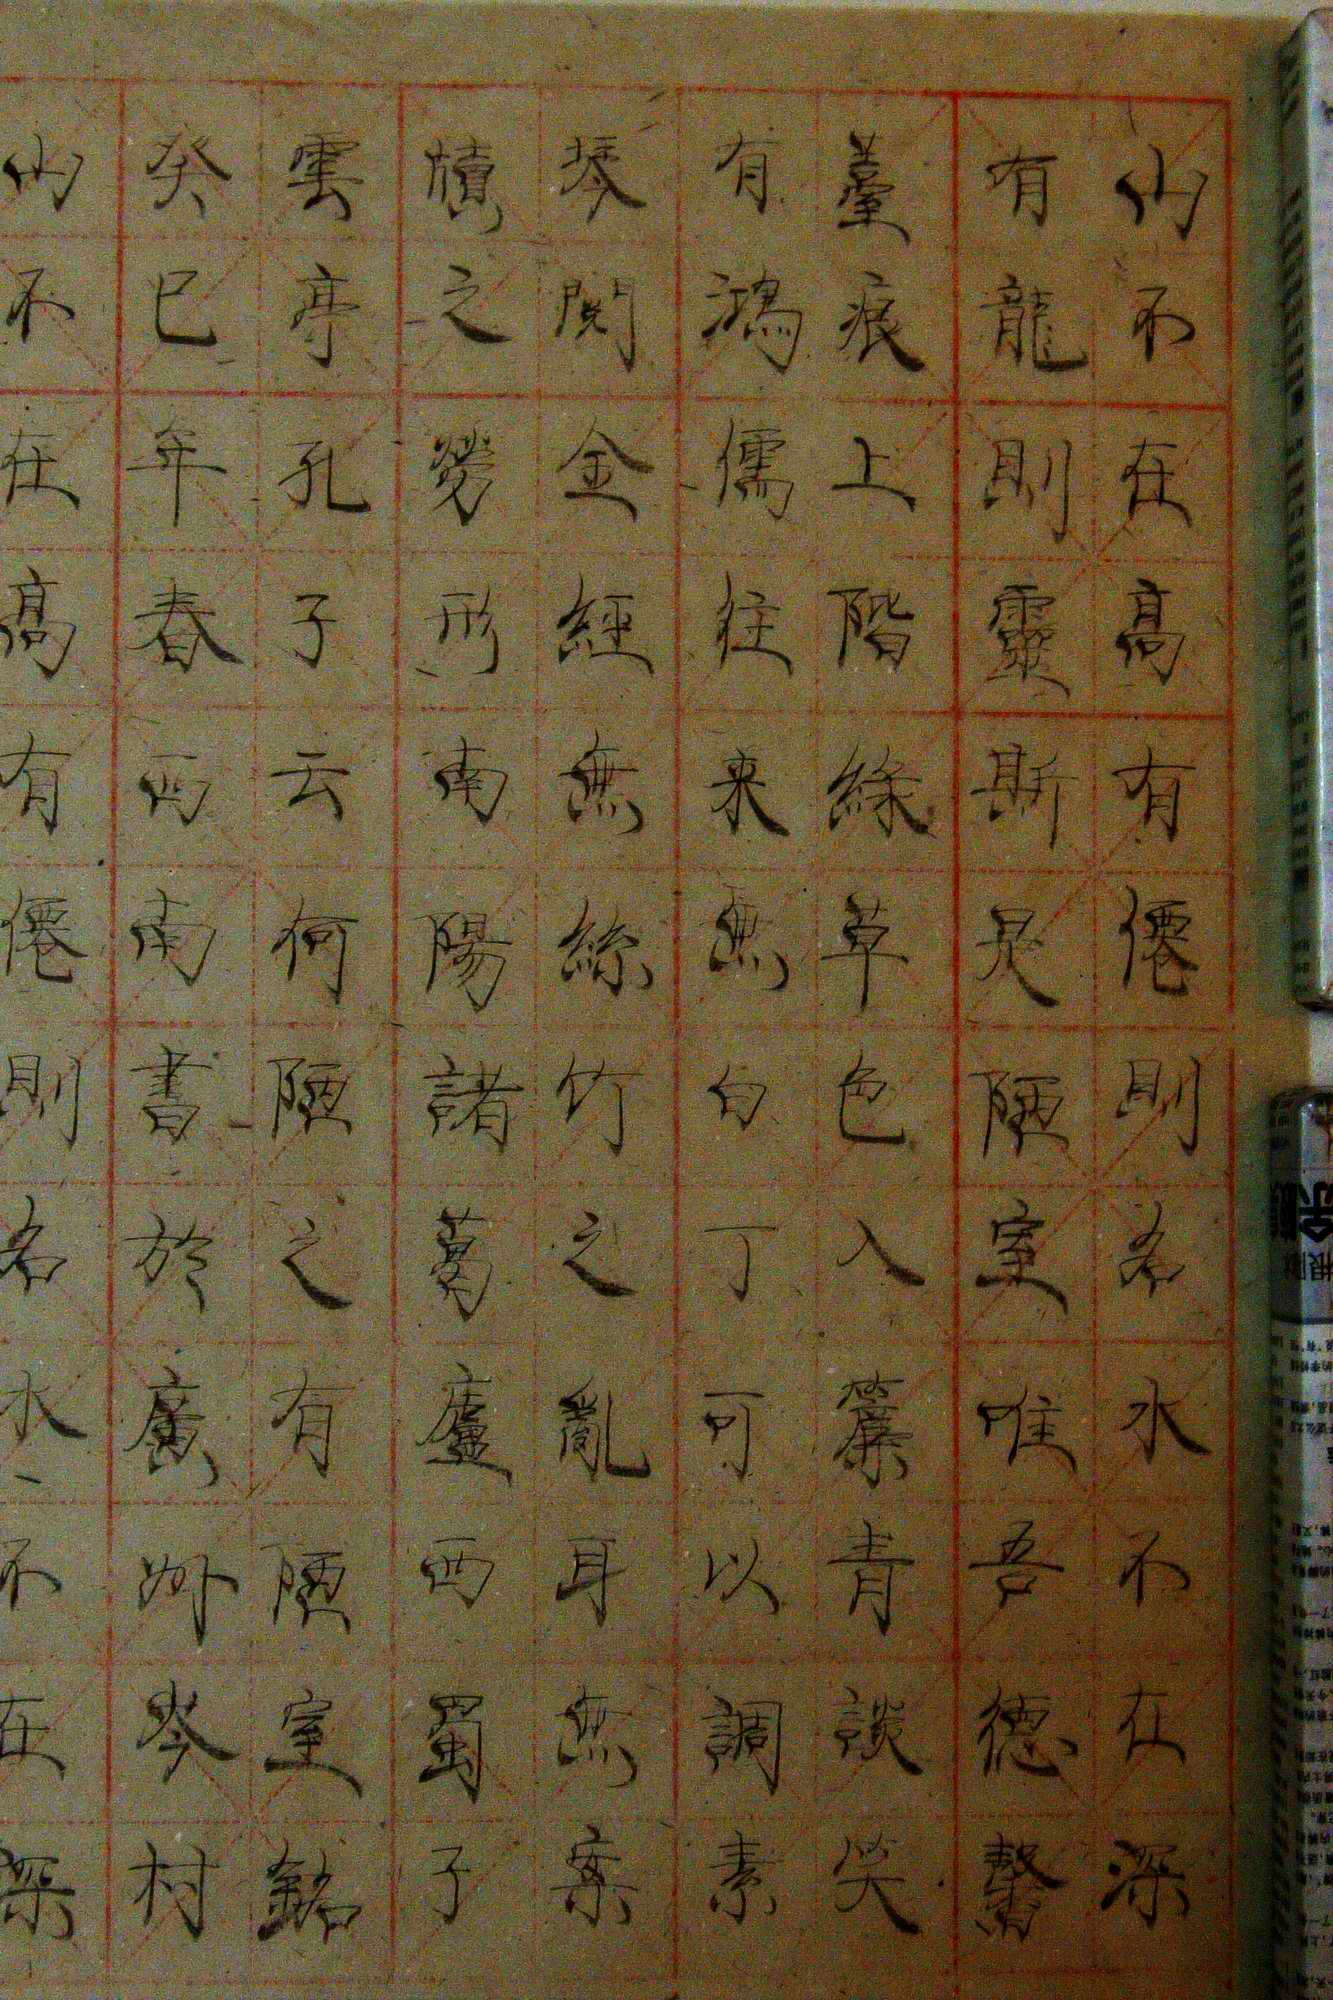 山不在高有僊則名水不在深
有龍則靈斯是陋室唯吾德馨
薹痕上階綠草色入簾青談笑
有鴻儒往来無白丁可以調素
琴閱金經無絲竹之亂耳無案
牘之勞形南陽諸葛廬西蜀子
雲亭孔子云何陋之有陋室銘
癸巳年春西南書於廣州岑村
山不在高有僊則名水不在深